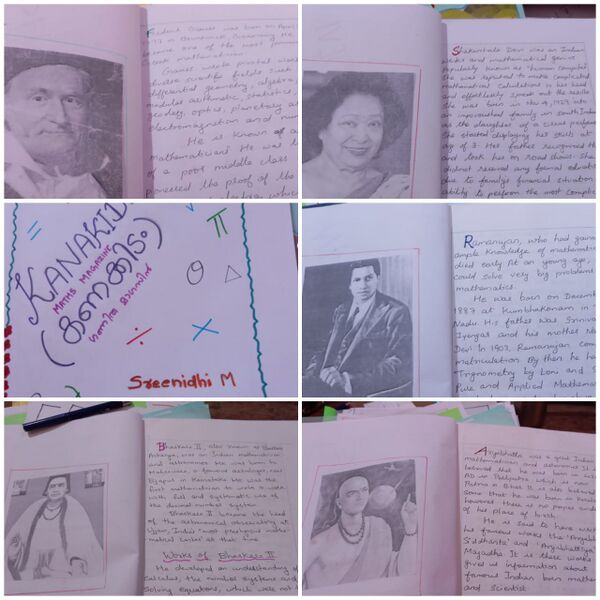 Friedrich Gauss was born on April
1777 in Brunswick, Germany. He
became one of the most famous
mathematician
Gauss wrote pivotal works
diverse scientific fields such
differential geometry, algebra,
modular arithmetic, statistics,
geodesy, optics, planetary as
electromagnetism and num
He is known as a
mathematicians He was b
of a poor middle class
possessed the proof of the
which
Shakuntala Devi was an Indian
writer and mathematical genius
popularly known as Human computer
She was reputed to make complicated
mathematical calculations in her head
and effortlessly speak out the results
She was born in 4, 1929 into
an impoverished family in south India
as the daughter of a circus performer
She started displaying her skills at
age of 3. Her father recognised th
and took her on road shows. She
did not received any formal educat
due to family's financial situation
ability to perform the most complex
KANAKID
MATHS MAGAZINE
(കണക്കിടം)
ഗണിത മാഗസിൻ
=
π
θ
△
÷
×
Sreenidhi M
Ramanujan, who had gain
ample knowledge of mathemat
died early At an young age,
could solve very big problems
mathematics.
He was born on Decemb
1887 at Kumbhakonam in
Nadu. His father was Sriniva
Iyengar and his mother
Devi In 1903, Ramanujan com
matriculation By then he ha
Trignometry by Loni and S
Pure and Applied Mathema
Bhaskara II, also known as Bhaskara
Acharya, was an Indian mathematician
and astronomer He was born in
a famous astrologer, near
Bijapur in Karnataka He was the
first mathematician to write a work
with full and systematic use of
the decimal number system
Bhaskara II became the head
of the astronomical observatory at
Ujjain, India's most prestigious mathe-
matical center at that time
Works of Bhaskara II
He developed an understanding of
calculus, the number systems and
solving equations, which were not
Aryabhatta was a great Indian
mathematician and astronomer It is
believed that he was born in
AD in Patliputra which is now
Patna in Bihar It is also believed
some that he was born in Kerala
however there is no proper evide
of his place of birth
He is said to have writt
his famous works the 'Aryabh
Siddhanta' and 'Aryabhattiya'
Magadha It is these works
gives us information about
famous Indian born mathem
and Scientist